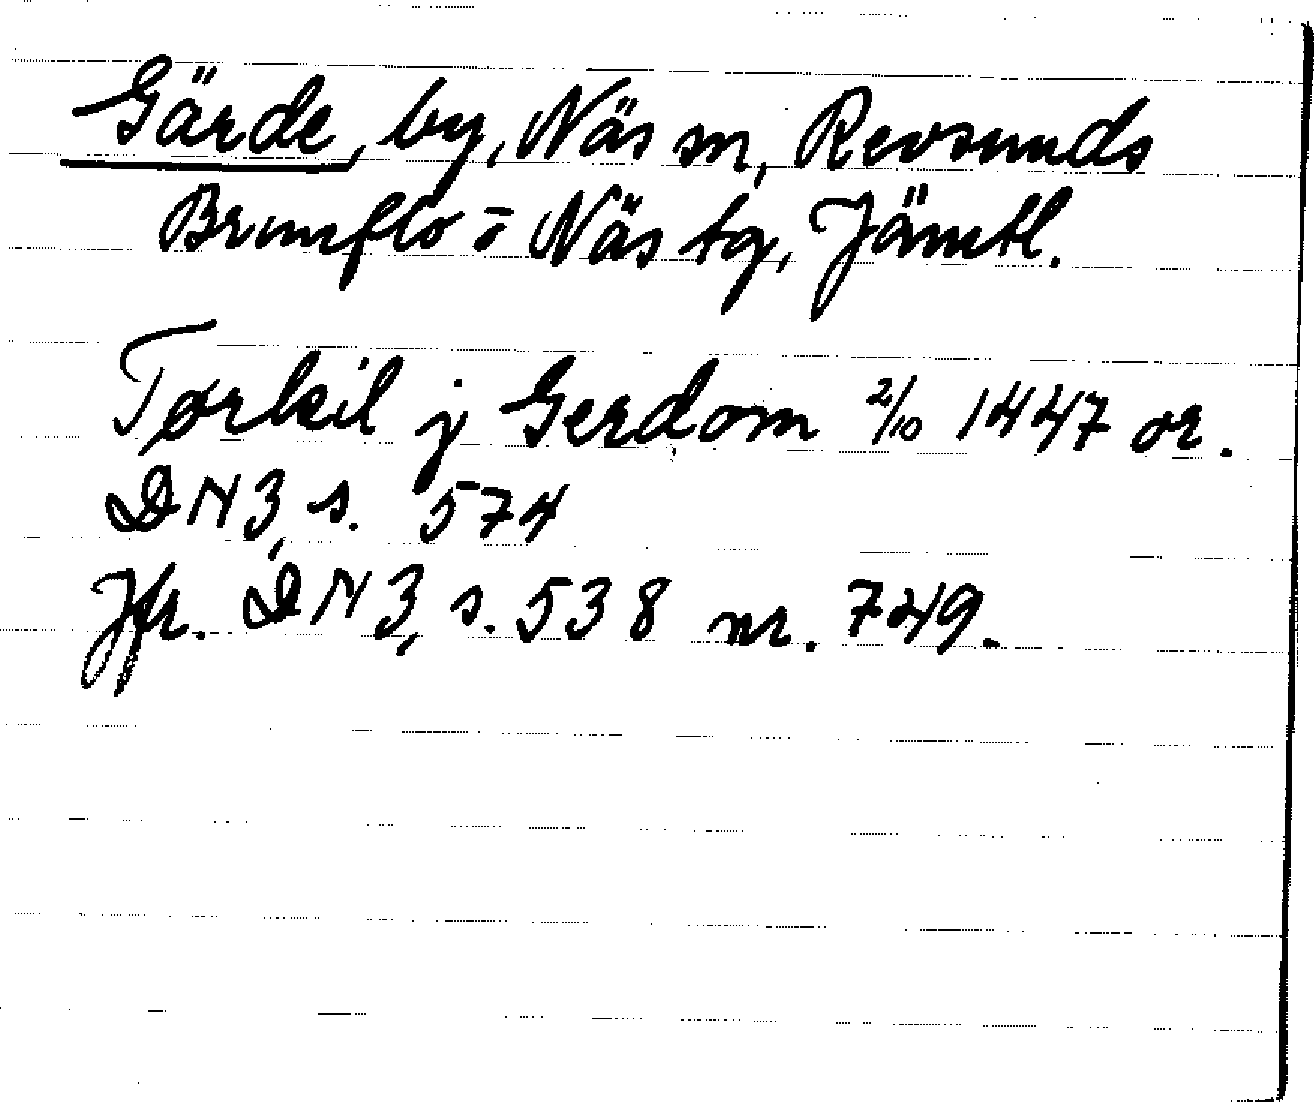 Gärde, by, Näs sn, Revsunds
Brunflo o Näs tg, Jämtl.
Tørkil j Gerdom 2/10 1447 or.
DN 3, s. 574
Jfr. DN 3, s. 538 nr. 749.